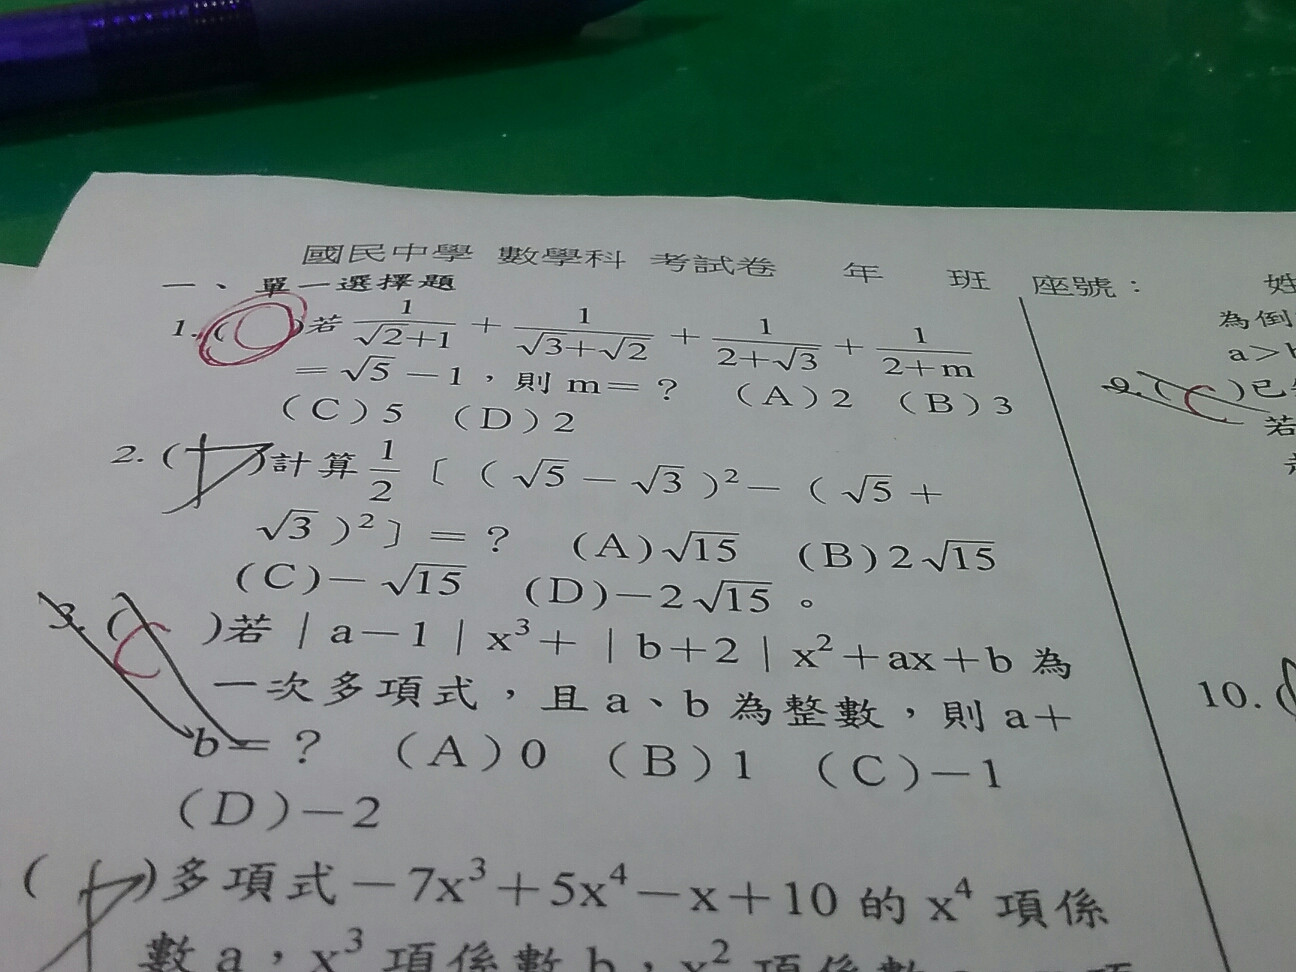 國民中學 數學科 考試卷 年 班 座號：
一、單一選擇題
1.( )若 1/(√2+1) + 1/(√3+√2) + 1/(2+√3) + 1/(2+m)
=√5－1，則m=？ (A)2 (B)3
(C)5 (D)2
2.( )計算 1/2〔(√5－√3)²－(√5+
√3)²〕=？ (A)√15 (B)2√15
(C)－√15 (D)－2√15。
3.( C )若|a－1|x³+|b+2|x²+ax+b為
一次多項式，且a、b為整數，則a+
b=？ (A)0 (B)1 (C)－1
(D)－2
( )多項式－7x³+5x⁴－x+10的x⁴項係
數a，x³項係數b，x²項係數
為倒
a>b
9.( C )已
若
10.(